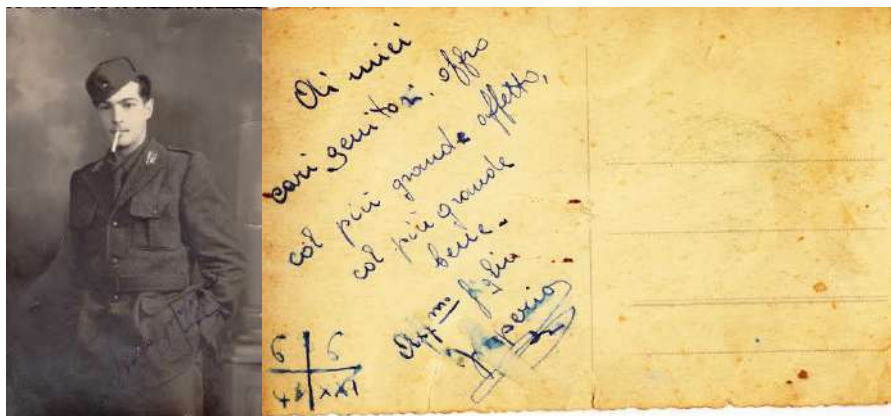 Ai miei
cari genitori. offro
col più grande affetto,
col più grande
bene -
Aff.mo figlio
Imperio
6 6
XXI